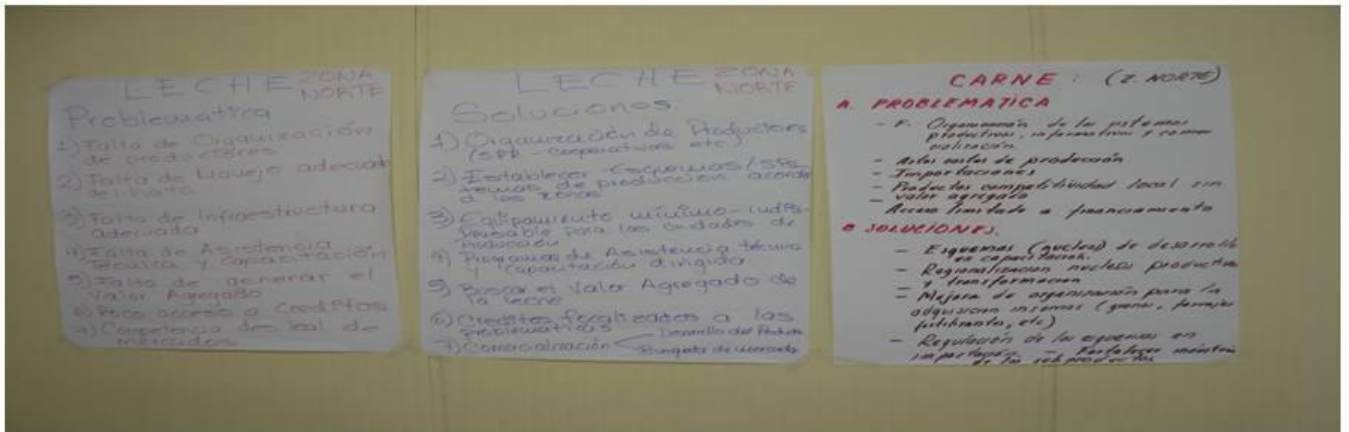 LECHE ZONA
NORTE
Problematica
1) Falta de Organización
de productores
2) Falta de Manejo adecuado
del hato
3) Falta de Infraestructura
adecuada
4) Falta de Asistencia
Técnica y capacitación
5) Falta de generar el
Valor Agregado
6) Poco acceso a Creditos
7) Competencia desleal de
mercados
LECHE ZONA
NORTE
Soluciones
1) Organización de Productores
(SPR - Cooperativas etc)
2) Establecer Esquemas/Sis-
temas de producción acorde
a las zonas
3) Equipamiento mínimo - indis-
pensable para las unidades de
Producción
4) Programas de Asistencia técnica
y capacitación dirigida
5) Buscar el Valor Agregado de
la leche
6) Creditos focalizados a las
problematicas
7) Comercialización Desarrollo del Producto
de mercado
CARNE : (Z. NORTE)
A. PROBLEMATICA
- F. Organización de los sistemas
productivos, informativos y comer
cialización
- Altos costos de producción
- Importaciones
- Productos competitividad local sin
valor agregado
- Acceso limitado a financiamiento
B SOLUCIONES.
- Esquemas (nucleos) de desarrollo
en capacitación.
- Regionalizacion nucleos productivos
y transformacion
- Mejora de organización para la
adquisicion insumos (granos, forrajes
fertilizantes, etc)
- Regulación de los esquemas en
importación. - Fortalecer
de los subproductos